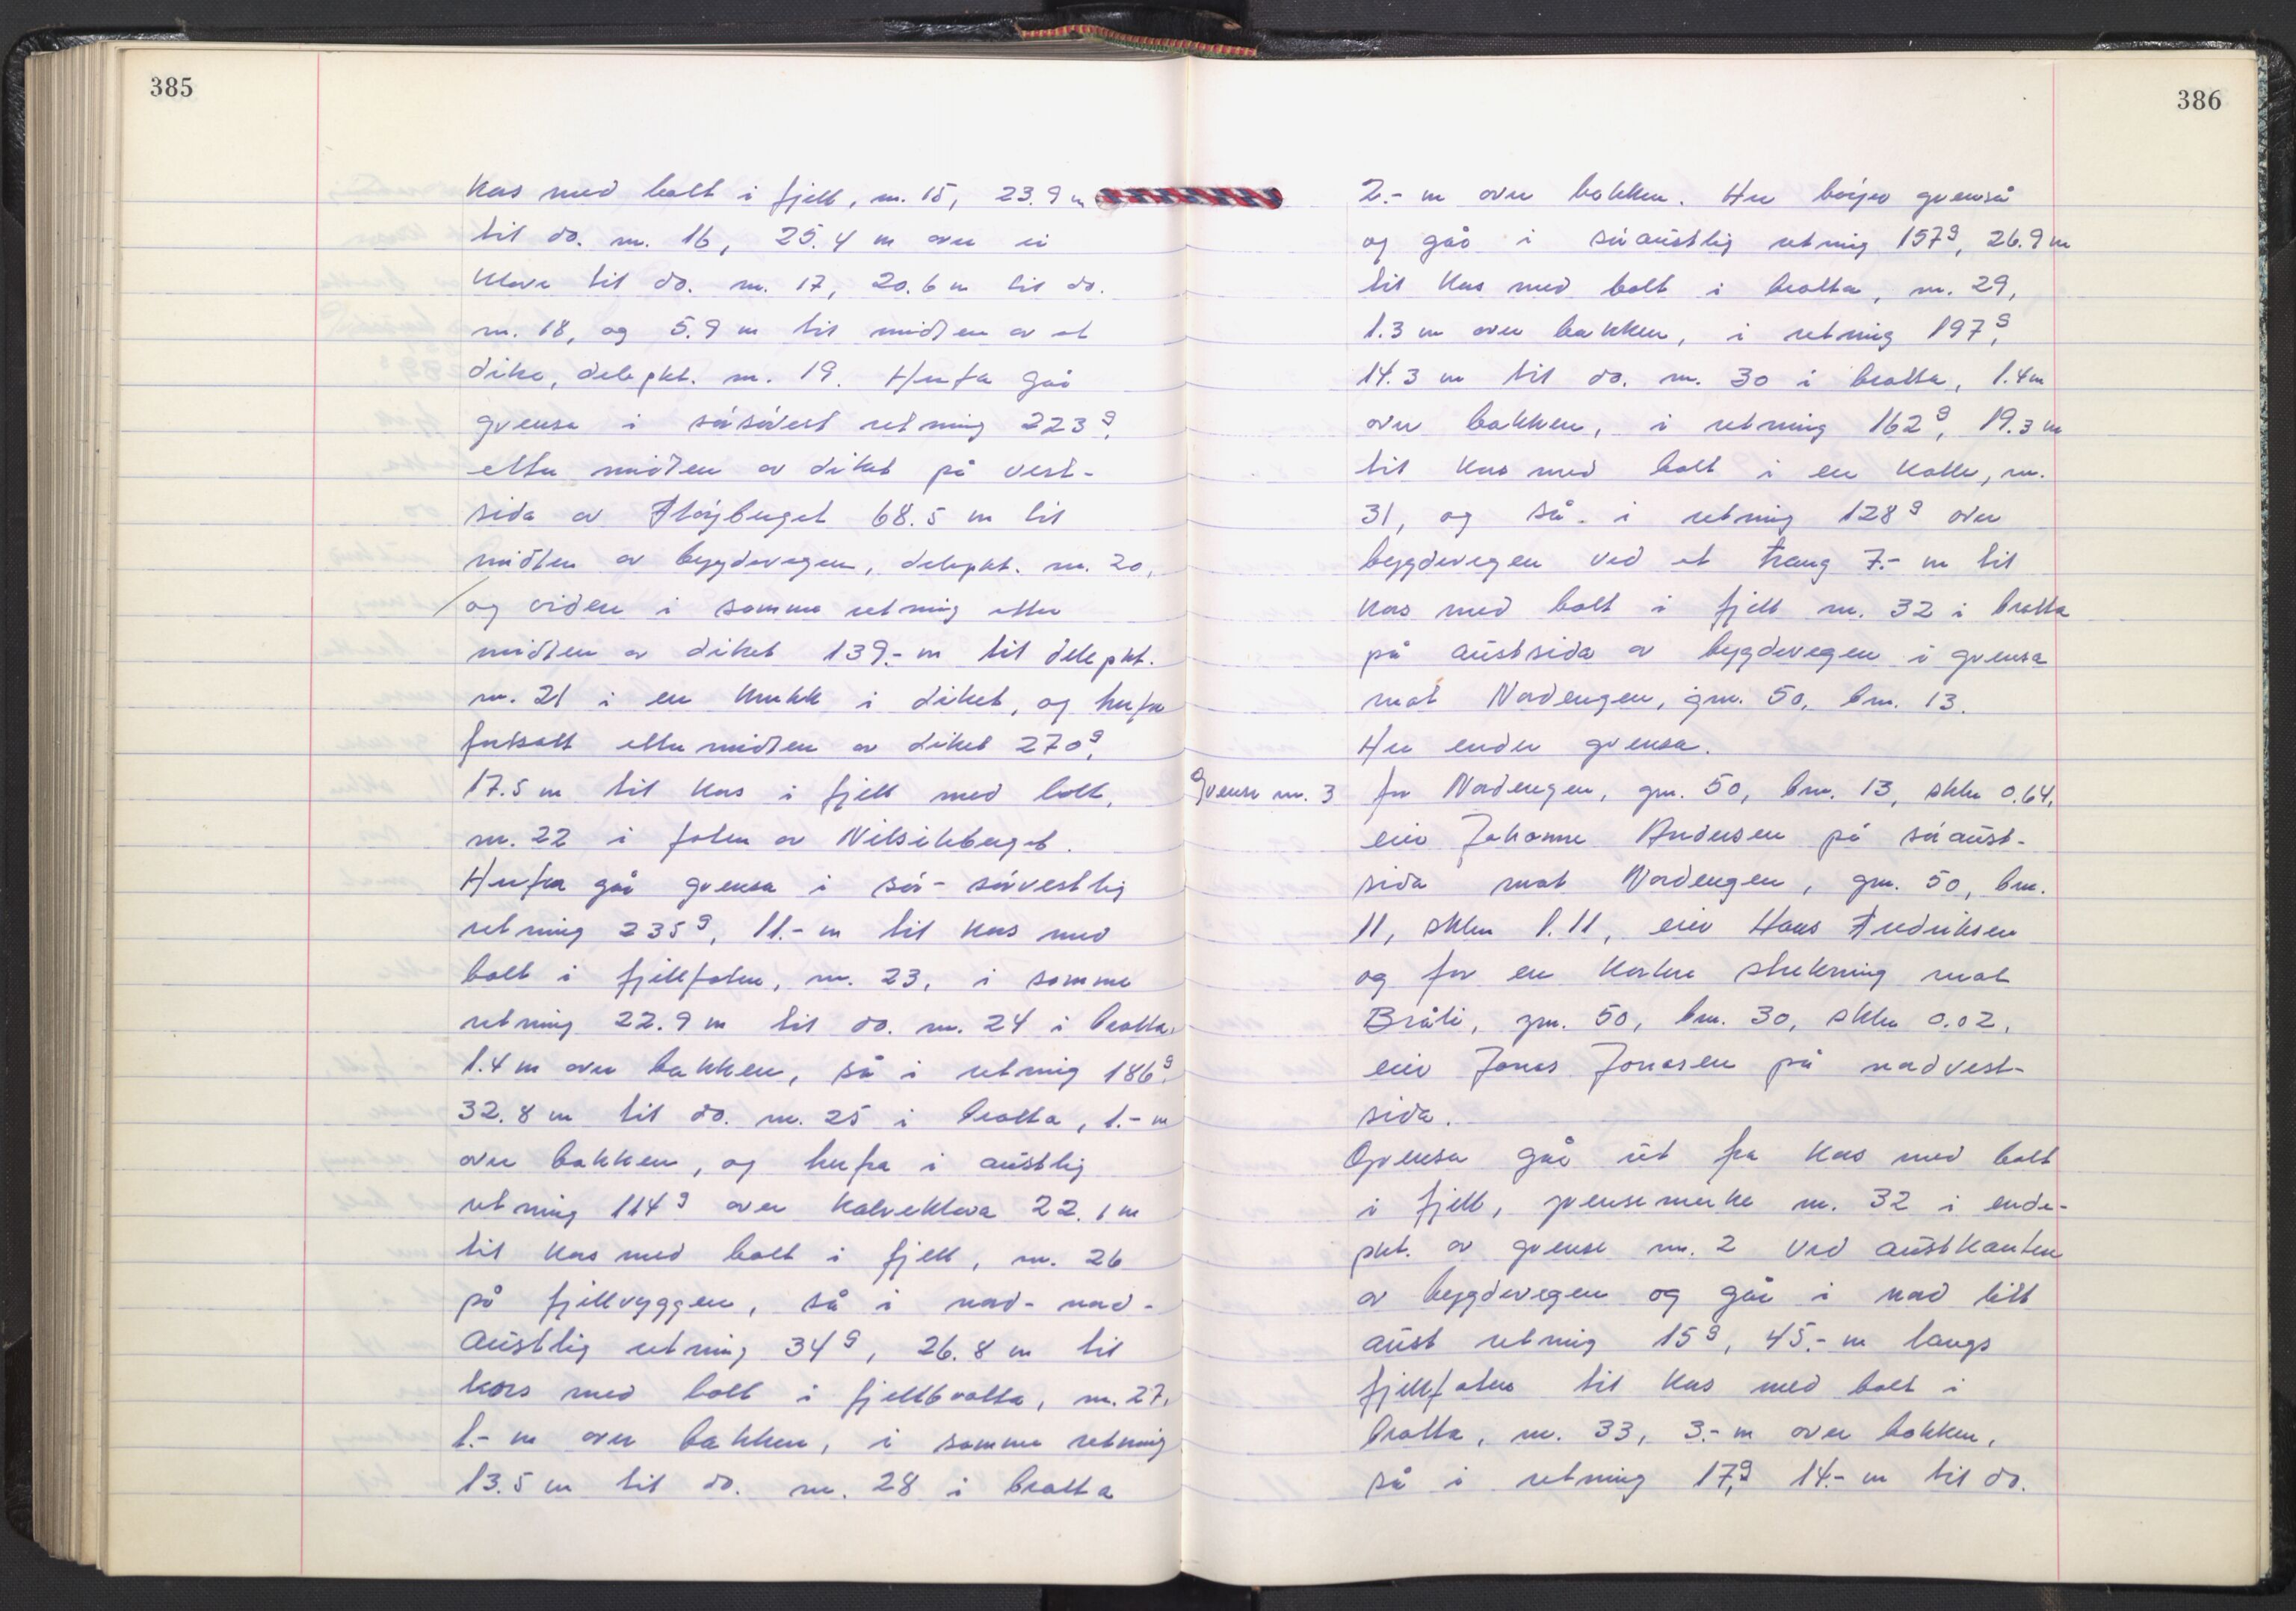 385
kors med bolt i fjell, nr. 15, 23.9 m
til do. nr. 16, 25.4 m over ei
kløve til do. nr. 17, 20.6 m til do.
nr. 18, og 5.9 m til midten av et
dike, delepkt. nr. 19. Herfra går
grensa i sørsørvest retning 223 g,
etter midten av diket på vest-
sida av Fløyberget 68.5 m til
midten av bygdevegen, delepkt. nr. 20,
og videre i samme retning etter
midten av diket 139.- m til delepkt.
nr. 21 i en knekk i diket, og herfra
fortsatt etter midten av diket 270 g,
17.5 m til kors i fjell med bolt,
nr. 22 i foten av Nilsikberget.
Herfra går grensa i sør-sørvestlig
retning 235 g, 11.- m til kors med
bolt i fjellfoten, nr. 23, i samme
retning 22.9 m til do. nr. 24 i bratta,
1.4 m over bakken, så i retning 186 g,
32.8 m til do. nr. 25 i bratta, 1.- m
over bakken, og herfra i austlig
retning 114 g over Kalvekløva 22.1 m
til kors med bolt i fjell, nr. 26
på fjellryggen, så i nord-nord-
austlig retning 34 g, 26.8 m til
kors med bolt i fjellbratta, nr. 27,
1.- m over bakken, i samme retning
13.5 m til do. nr. 28 i bratta
386
2.- m over bakken. Her bøyer grensa
og går i søraustlig retning 157 g, 26.9 m
til kors med bolt i bratta, nr. 29,
1.3 m over bakken, i retning 197 g,
14.3 m til do. nr. 30 i bratta, 1.4 m
over bakken, i retning 162 g, 19.3 m
til kors med bolt i en kolle, nr.
31, og så i retning 128 g over
bygdevegen ved et trang 7.- m til
kors med bolt i fjell nr. 32 i bratta
på austsida av bygdevegen i grensa
mot Nordengen, gnr. 50, bnr. 13.
Her ender grensa.
Grense nr. 3 for Nordengen, gnr. 50, bnr. 13, skyld 0.64,
eier Johanne Andersen på søraust-
sida mot Nordengen, gnr. 50, bnr.
11, skyld 1.11, eier Hans Fredriksen
og for en kortere strekning mot
Bråli, gnr. 50, bnr. 30, skyld 0.02,
eier Jonas Jonasen på nordvest-
sida.
Grensa går ut fra kors med bolt
i fjell, grensemerke nr. 32 i ende-
pkt. av grense nr. 2 ved austkanten
av bygdevegen og går i nord litt
aust retning 15 g, 45.- m langs
fjellfoten til kors med bolt i
bratta, nr. 33, 3.- m over bakken,
så i retning 17 g, 14.- m til do.